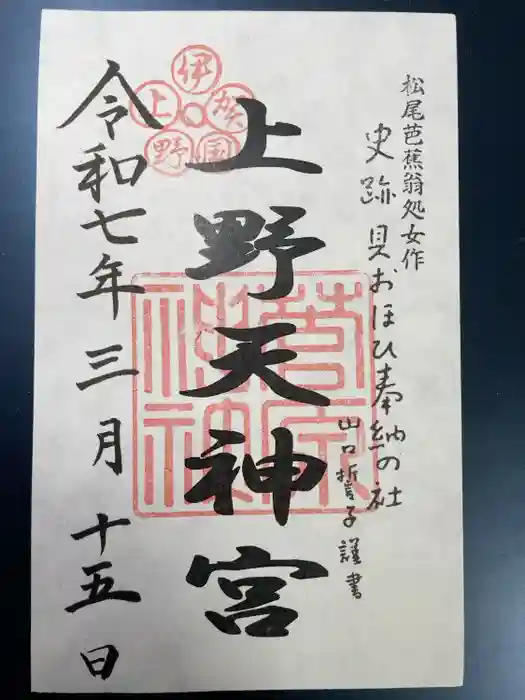 松尾芭蕉翁処女作
史跡 貝おほひ奉納の社
山口誓子謹書
上野天神宮
令和七年三月十五日
伊賀国野上
菅原神社